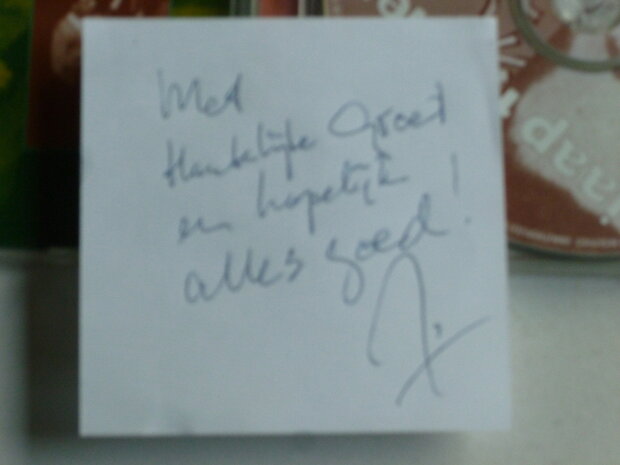 Met
Hartelijke Groet
en hopelijk
alles goed!
Jaap